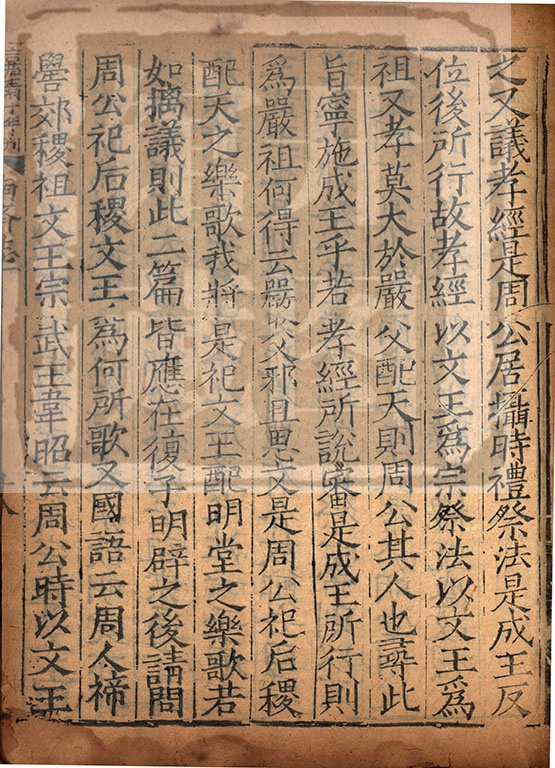 之又議孝經是周公居攝時禮祭法是成王反
位後所行故孝經以文王爲宗祭法以文王爲
祖又孝莫大於嚴父配天則周公其人也尋此
旨寧施成王乎若孝經所說審是成王所行則
爲嚴祖何得云嚴父邪且思文是周公祀后稷
配天之樂歌我將是祀文王配明堂之樂歌若
如摛議則此二篇皆應在復子明辟之後請問
周公祀后稷文王爲何所歌又國語云周人禘
嚳郊稷祖文王宗武王韋昭云周公時以文王